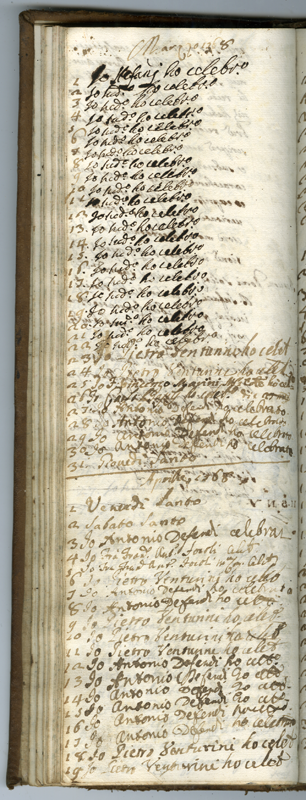 Marzo 1768
1 Io Stefani ho celebro
2 Io sud.o ho celebro
3 Io sud.o ho celebro
4 Io sud.o ho celebro
5 Io sud.o ho celebro
6 Io sud.o ho celebro
7 Io sud.o ho celebro
8 Io sud.o ho celebro
9 Io sud.o ho celebro
10 Io sud.o ho celebro
11 Io sud.o ho celebro
12 Io sud.o ho celebro
13 Io sud.o ho celebro
14 Io sud.o ho celebro
15 Io sud.o ho celebro
16 Io sud.o ho celebro
17 Io sud.o ho celebro
18 Io sud.o ho celebro
19 Io sud.o ho celebro
20 Io sud.o ho celebro
21 Io sud.o ho celebro
22 Io sud.o ho celebro
23 Io Pietro Venturini ho celbt
24 Io Pietro Venturini ho celbt
25 Io Vincenzo Marini
26
27 Io Antonio Defendi ho celebrato
28 Io Antonio Defendi ho celebrato
29 Io Antonio Defendi ho celebrato
30 Io Antonio Defendi ho celebrato
31 Giovedi Santo
Aprile 1768
1 Venerdi Santo
2 Sabato Santo
3 Io Antonio Defendi celebrai
4 Io Fra
5 Io Fra
6 Io Pietro Venturini ho celbo
7 Io Antonio Defendi ho celebrato
8 Io Antonio Defendi ho celb.
9 Io Pietro Venturini ho celbt
10 Io Pietro Venturini ho celbt
11 Io Pietro Venturini ho celbt
12 Io Antonio Defendi ho celb.
13 Io Antonio Defendi ho celb.
14 Io Antonio Defendi ho celb.
15 Io Antonio Defendi ho celb.
16 Io Antonio Defendi ho celeb.
17 Io Antonio Defendi ho celebrato
18 Io Pietro Venturini ho celbt
19 Io Pietro Venturini ho celbt